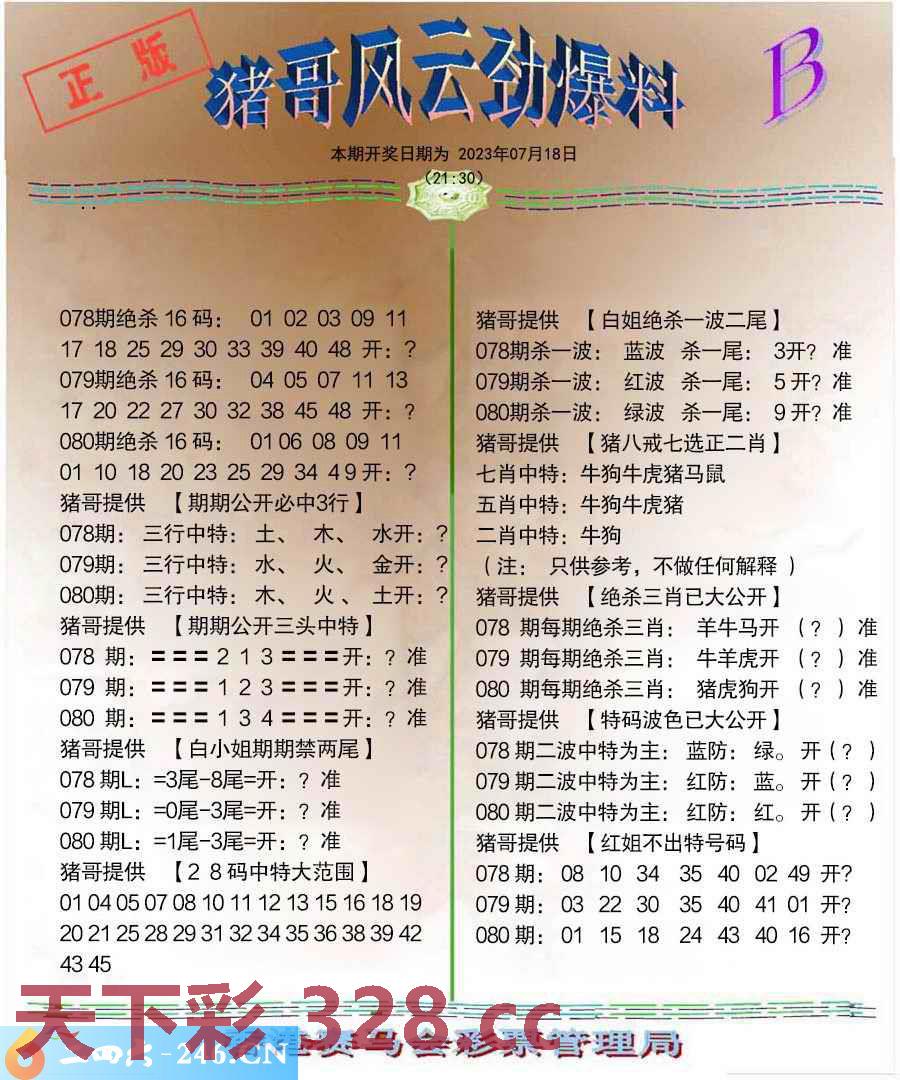 正版
猪哥风云劲爆料
B
本期开奖日期为 2023年07月18日
(21:30)
078期绝杀 16 码： 01 02 03 09 11
17 18 25 29 30 33 39 40 48 开：？
079期绝杀 16 码： 04 05 07 11 13
17 20 22 27 30 32 38 45 48 开：？
080期绝杀 16 码： 01 06 08 09 11
01 10 18 20 23 25 29 34 4 9 开：？
猪哥提供 【期期公开必中3行】
078期： 三行中特： 土、 木、 水开：？
079期： 三行中特： 水、 火、 金开：？
080期： 三行中特： 木、 火 、 土开：？
猪哥提供 【期期公开三头中特】
078 期：＝＝＝ 2 1 3 ＝＝＝开：？准
079 期：＝＝＝ 1 2 3 ＝＝＝开：？准
080 期：＝＝＝ 1 3 4 ＝＝＝开：？准
猪哥提供 【白小姐期期禁两尾】
078 期L：=3尾-8尾=开：？准
079 期L：=0尾-3尾=开：？准
080 期L：=1尾-3尾=开：？准
猪哥提供 【2 8 码中特大范围】
01 04 05 07 08 10 11 12 13 15 16 18 19
20 21 25 28 29 31 32 34 35 36 38 39 42
43 45
猪哥提供 【白姐绝杀一波二尾】
078期杀一波： 蓝波 杀一尾： 3开？准
079期杀一波： 红波 杀一尾： 5 开？准
080期杀一波： 绿波 杀一尾： 9 开？准
猪哥提供 【猪八戒七选正二肖】
七肖中特：牛狗牛虎猪马鼠
五肖中特：牛狗牛虎猪
二肖中特：牛狗
（注： 只供参考，不做任何解释 ）
猪哥提供 【绝杀三肖已大公开】
078 期每期绝杀三肖： 羊牛马开 （？ ）准
079 期每期绝杀三肖： 牛羊虎开 （？ ）准
080 期每期绝杀三肖： 猪虎狗开 （？ ）准
猪哥提供 【特码波色已大公开】
078 期二波中特为主： 蓝防： 绿。 开（？ ）
079 期二波中特为主： 红防： 蓝。 开（？ ）
080 期二波中特为主： 红防： 红。 开（？ ）
猪哥提供 【红姐不出特号码】
078 期： 08 10 34 35 40 02 49 开?
079 期： 03 22 30 35 40 41 01 开?
080 期： 01 15 18 24 43 40 16 开?
天下彩 328.cc
-246.CN
赛马会彩票管理局